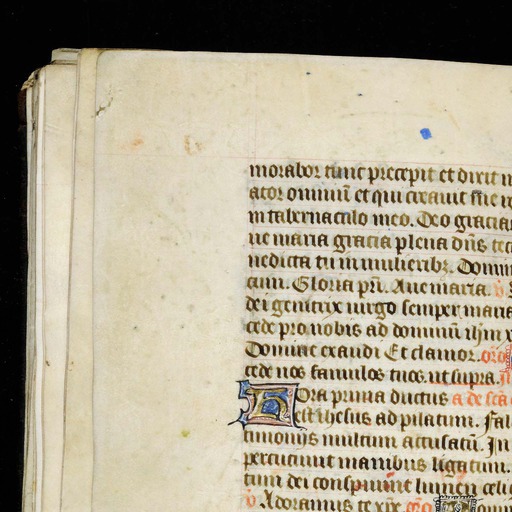 morabor tunc precepit et dixit m
ator omniū et qui creauit me re
in tabernaculo meo. Deo gracias
ue maria gracia plena dn̄s tec
nedicta tu in mulieribꝫ. Domin
cum. Gloria pr̄i. Aue maria. v̄
dei genitrix uirgo semper maria
cede pro nobis ad dominū ih̄m x
Domine exaudi Et clamor. oro
cede nos famulos tuos. ut supra.
Hora prima ductus a de sc̄a c
est ihesus ad pilatum. Fal
timoniis multum accusatū. In
percutiunt manibus ligatum.
tum dei conspuunt lumen celi
v̄ Adoramus te xp̄e. oro Domin